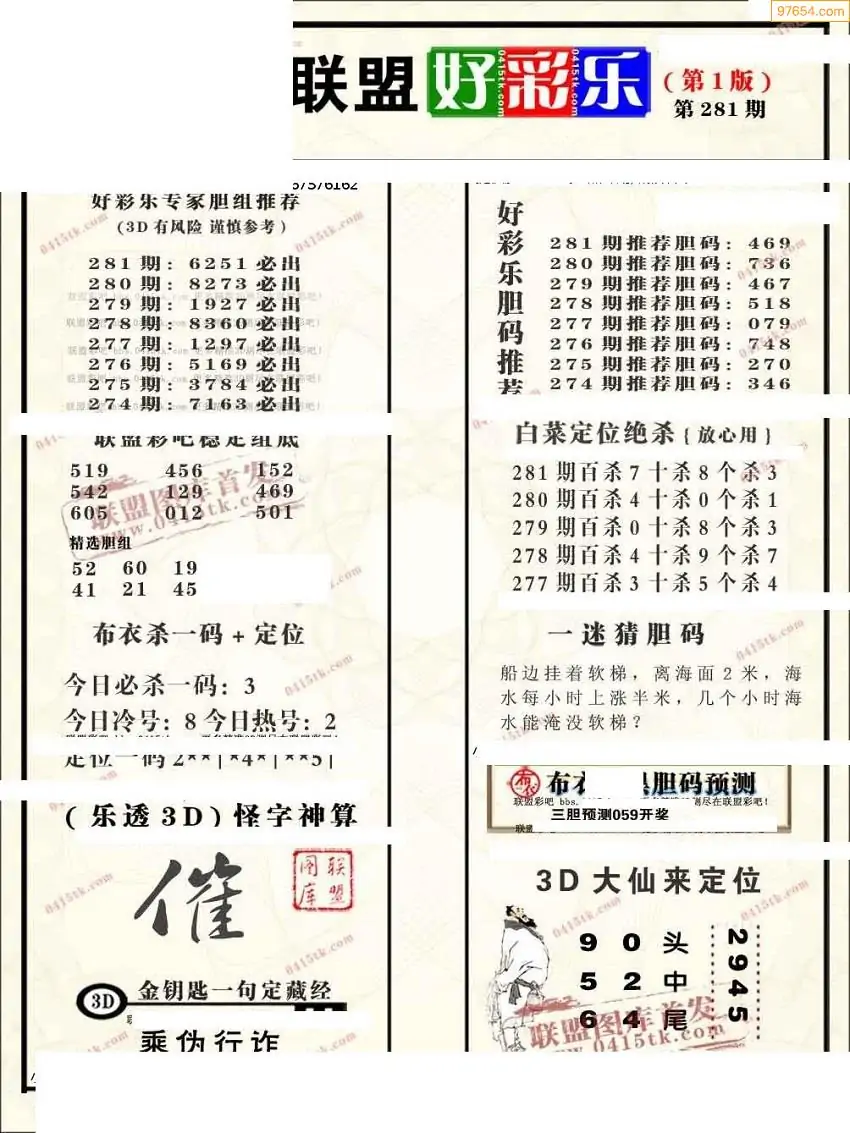 97654.com
联盟好彩乐
(第1版)
第281期
好彩乐专家胆组推荐
(3D有风险 谨慎参考)
281期: 6251必出
280期: 8273必出
279期: 1927必出
278期: 8360必出
277期: 1297必出
276期: 5169必出
275期: 3784必出
274期: 7163必出
联盟彩吧稳定组底
519 456 152
542 129 469
605 012 501
精选胆组
52 60 19
41 21 45
布衣杀一码+定位
今日必杀一码: 3
今日冷号: 8 今日热号: 2
定位一码 2**|*4*|**5|
(乐透3D)怪字神算
催
联盟图库
3D
金钥匙一句定藏经
乘伪行诈
好彩乐胆码推荐
281期推荐胆码: 469
280期推荐胆码: 736
279期推荐胆码: 467
278期推荐胆码: 518
277期推荐胆码: 079
276期推荐胆码: 748
275期推荐胆码: 270
274期推荐胆码: 346
白菜定位绝杀{放心用}
281期百杀7十杀8个杀3
280期百杀4十杀0个杀1
279期百杀0十杀8个杀3
278期百杀4十杀9个杀7
277期百杀3十杀5个杀4
一迷猜胆码
船边挂着软梯，离海面2米，海
水每小时上涨半米，几个小时海
水能淹没软梯？
布衣
胆码预测
三胆预测059开奖
3D大仙来定位
9 0 头
5 2 中
6 4 尾
2945
联盟图库首发
www.0415tk.com
0415tk.com